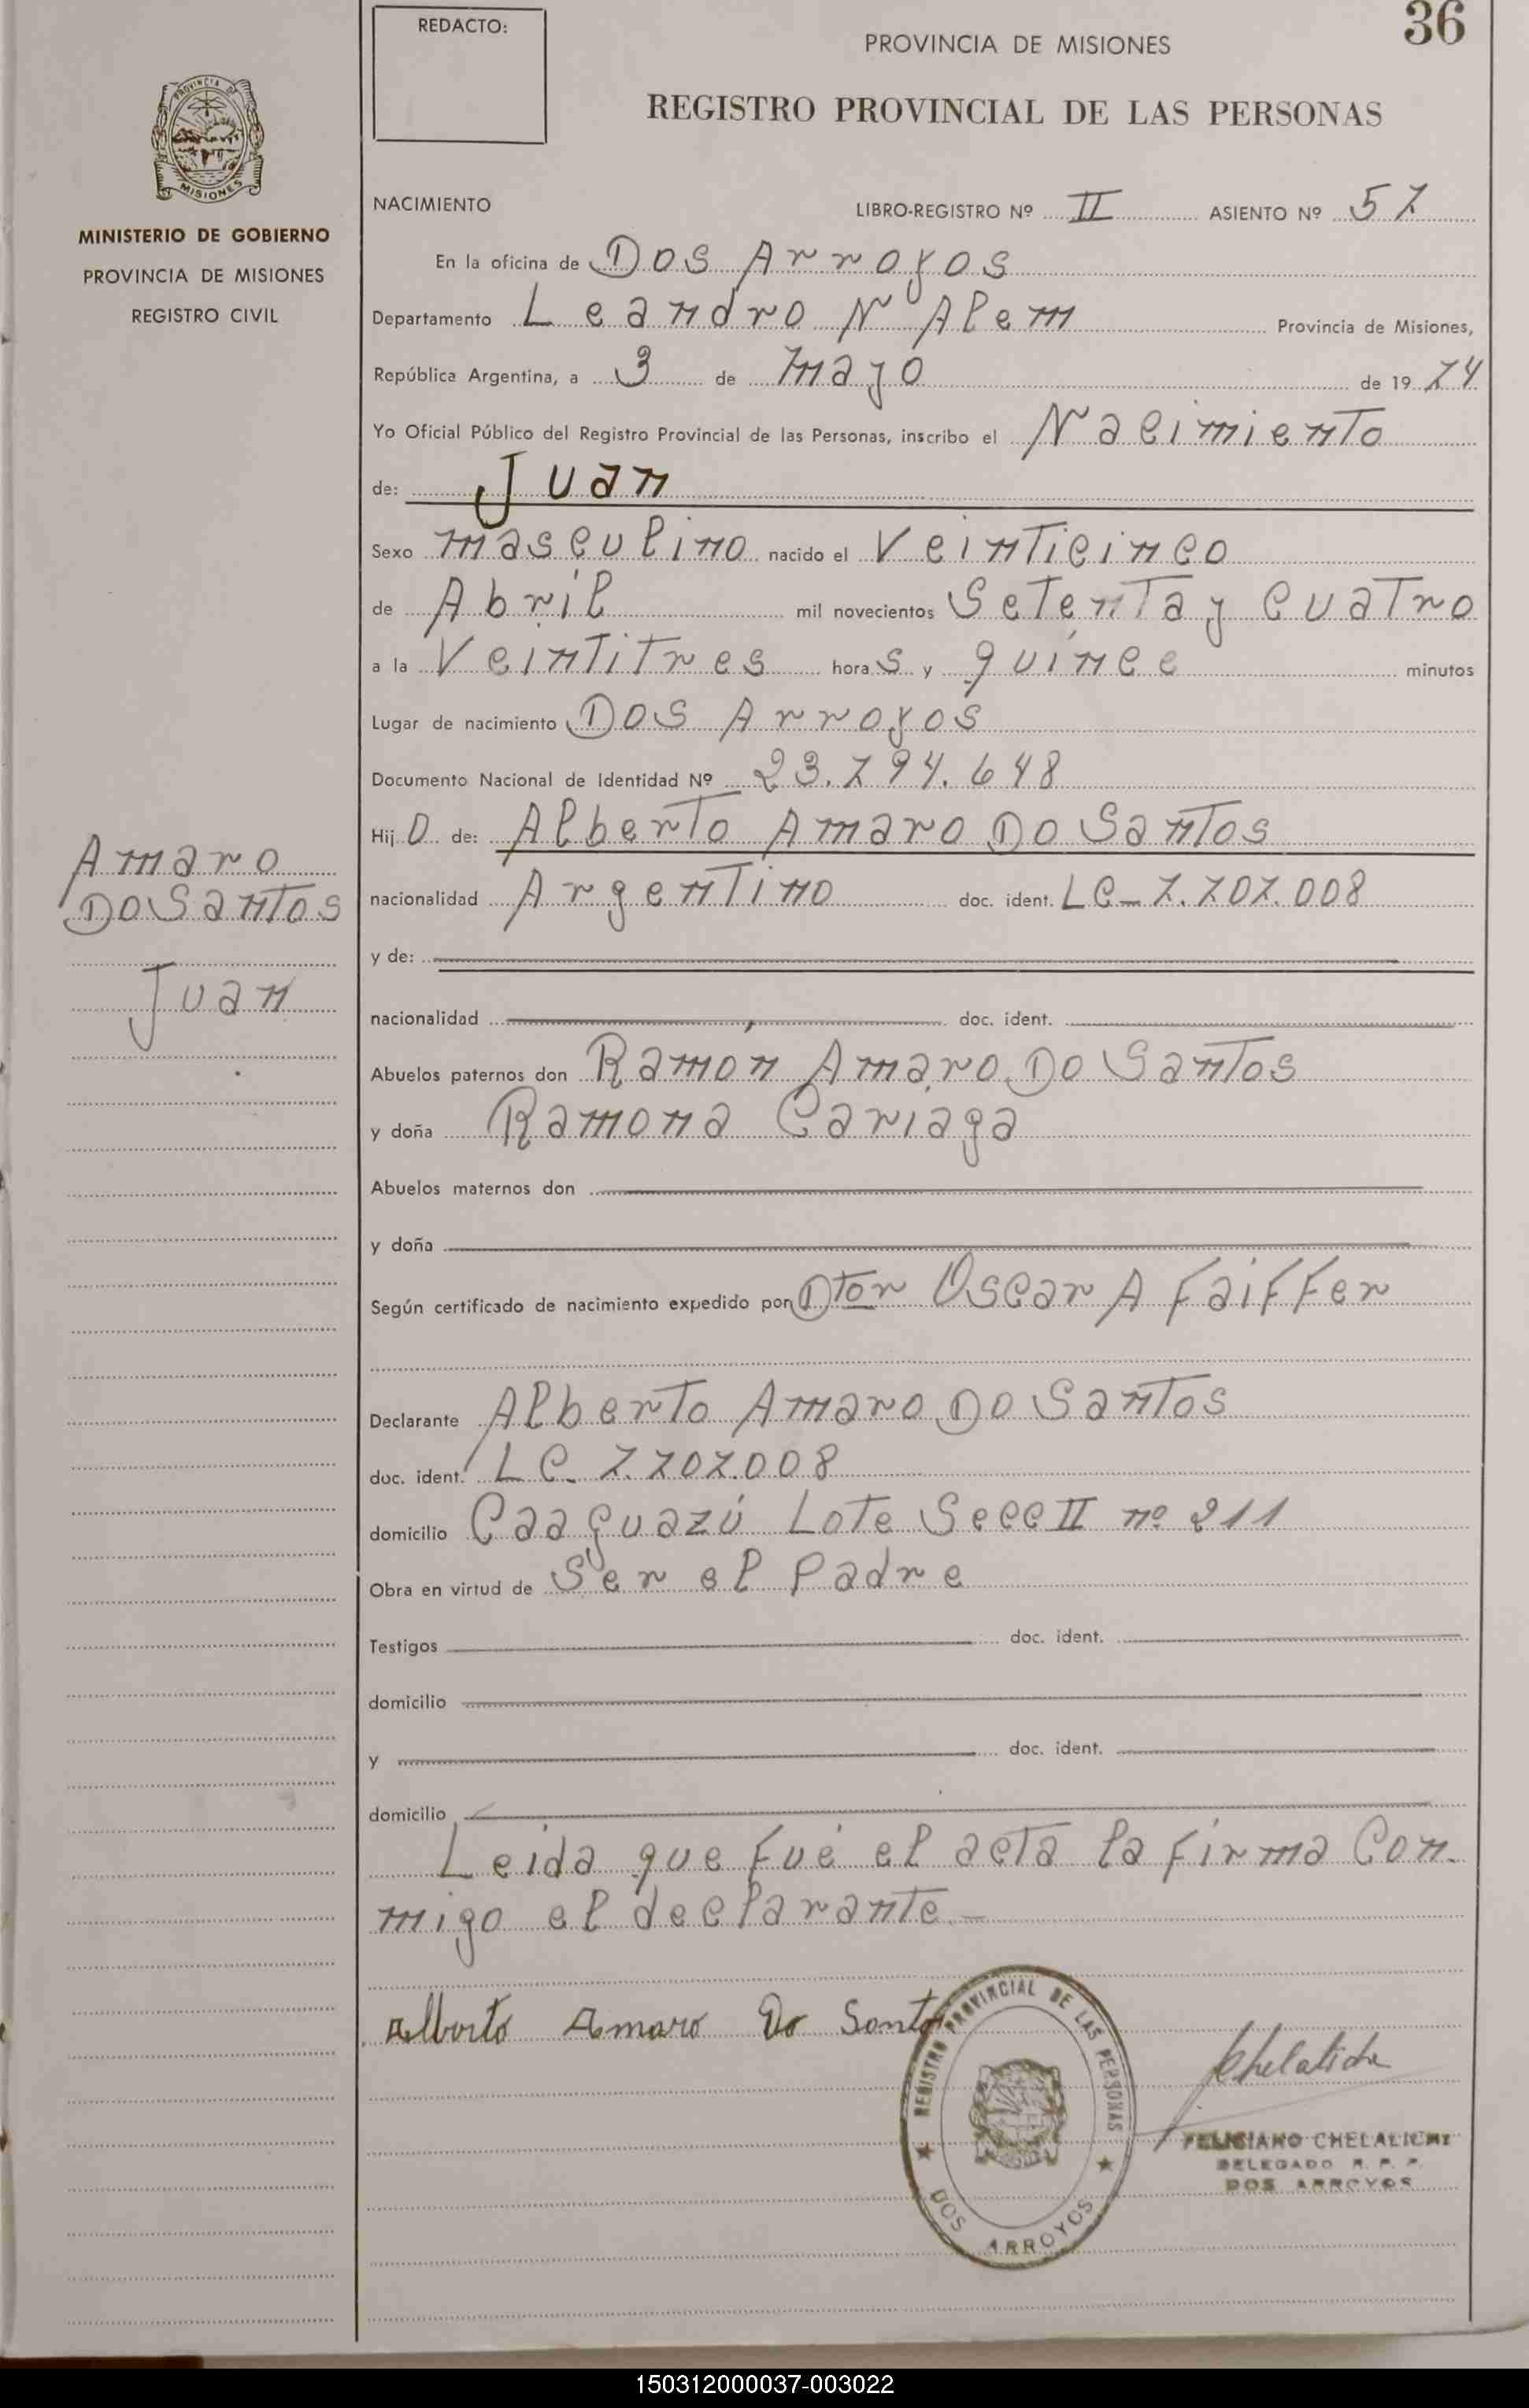 36
REDACTO:
PROVINCIA DE MISIONES
REGISTRO PROVINCIAL DE LAS PERSONAS
PROVINCIA DE
MISIONES
MINISTERIO DE GOBIERNO
PROVINCIA DE MISIONES
REGISTRO CIVIL
NACIMIENTO LIBRO-REGISTRO Nº II ASIENTO Nº 57
En la oficina de Dos Arroyos
Departamento Leandro N Alem Provincia de Misiones,
República Argentina, a 3 de mayo de 1974
Yo Oficial Público del Registro Provincial de las Personas, inscribo el Nacimiento
de: Juan
Sexo masculino nacido el Veinticinco
de Abril mil novecientos Setenta y Cuatro
a la Veintitres horas y quince minutos
Lugar de nacimiento Dos Arroyos
Documento Nacional de Identidad Nº 23.794.648
Hijo de: Alberto Amaro Do Santos
nacionalidad Argentino doc. ident. LC-7.707.008
y de:
nacionalidad doc. ident.
Abuelos paternos don Ramon Amaro Do Santos
y doña Ramona Cariaga
Abuelos maternos don
y doña
Según certificado de nacimiento expedido por Dtor Oscar A Faiffer
Declarante Alberto Amaro Do Santos
doc. ident. LC-7.707.008
domicilio Caaguazú Lote Secc II nº 211
Obra en virtud de Ser el Padre
Testigos doc. ident.
domicilio
y doc. ident.
domicilio
Leida que fué el acta la firma Con-
migo el declarante-
Amaro
Do Santos
Juan
Alberto Amaro Do Santos
REGISTRO PROVINCIAL DE LAS PERSONAS
DOS ARROYOS
Chelalichi
FELICIANO CHELALICHI
DELEGADO R. P. P.
DOS ARROYOS
150312000037-003022